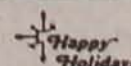 Happy
Holiday